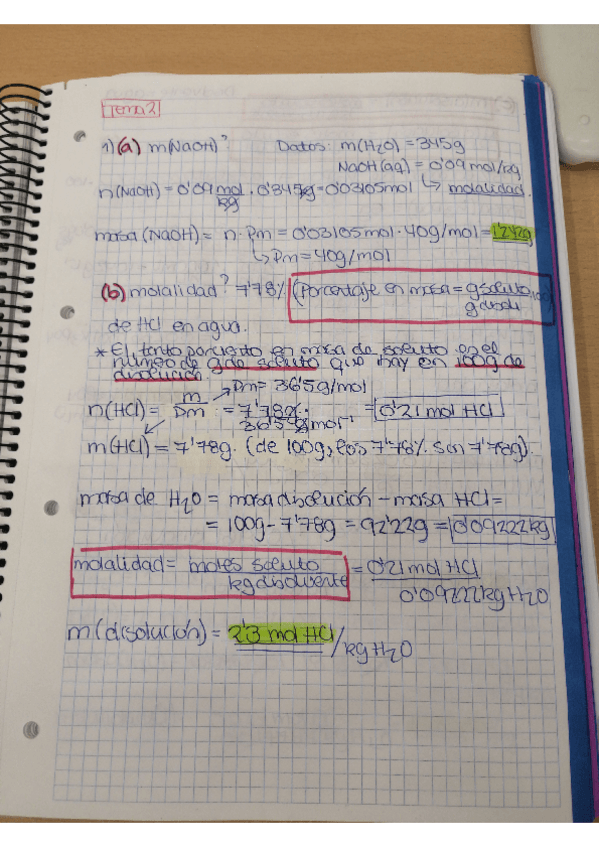 Tema 2
1) (a) m(NaOH)? Datos: m(H₂O) = 345g
NaOH(aq) = 0'09 mol/kg
n(NaOH) = 0'09 mol/kg · 0'345kg = 0'03105mol ↳ molalidad.
masa (NaOH) = n · Pm = 0'03105mol · 40g/mol = 1'242g
↳ Pm = 40g/mol
(b) molalidad? 7'78% (Porcentaje en masa = g soluto/g disol · 100)
de HCl en agua.
* El tanto por ciento en masa de soluto es el
número de g de soluto que hay en 100g de
disolución
n(HCl) = m/Pm = 7'78g / 36'5g/mol = 0'21 mol HCl
→ Pm = 36'5g/mol
m(HCl) = 7'78g. (de 100g, los 7'78% son 7'78g).
masa de H₂O = masa disolución - masa HCl =
= 100g - 7'78g = 92'22g = 0'09222kg
molalidad = moles soluto / kg disolvente = 0'21 mol HCl / 0'09222kg H₂O
m (disolución) = 2'3 mol HCl/kg H₂O